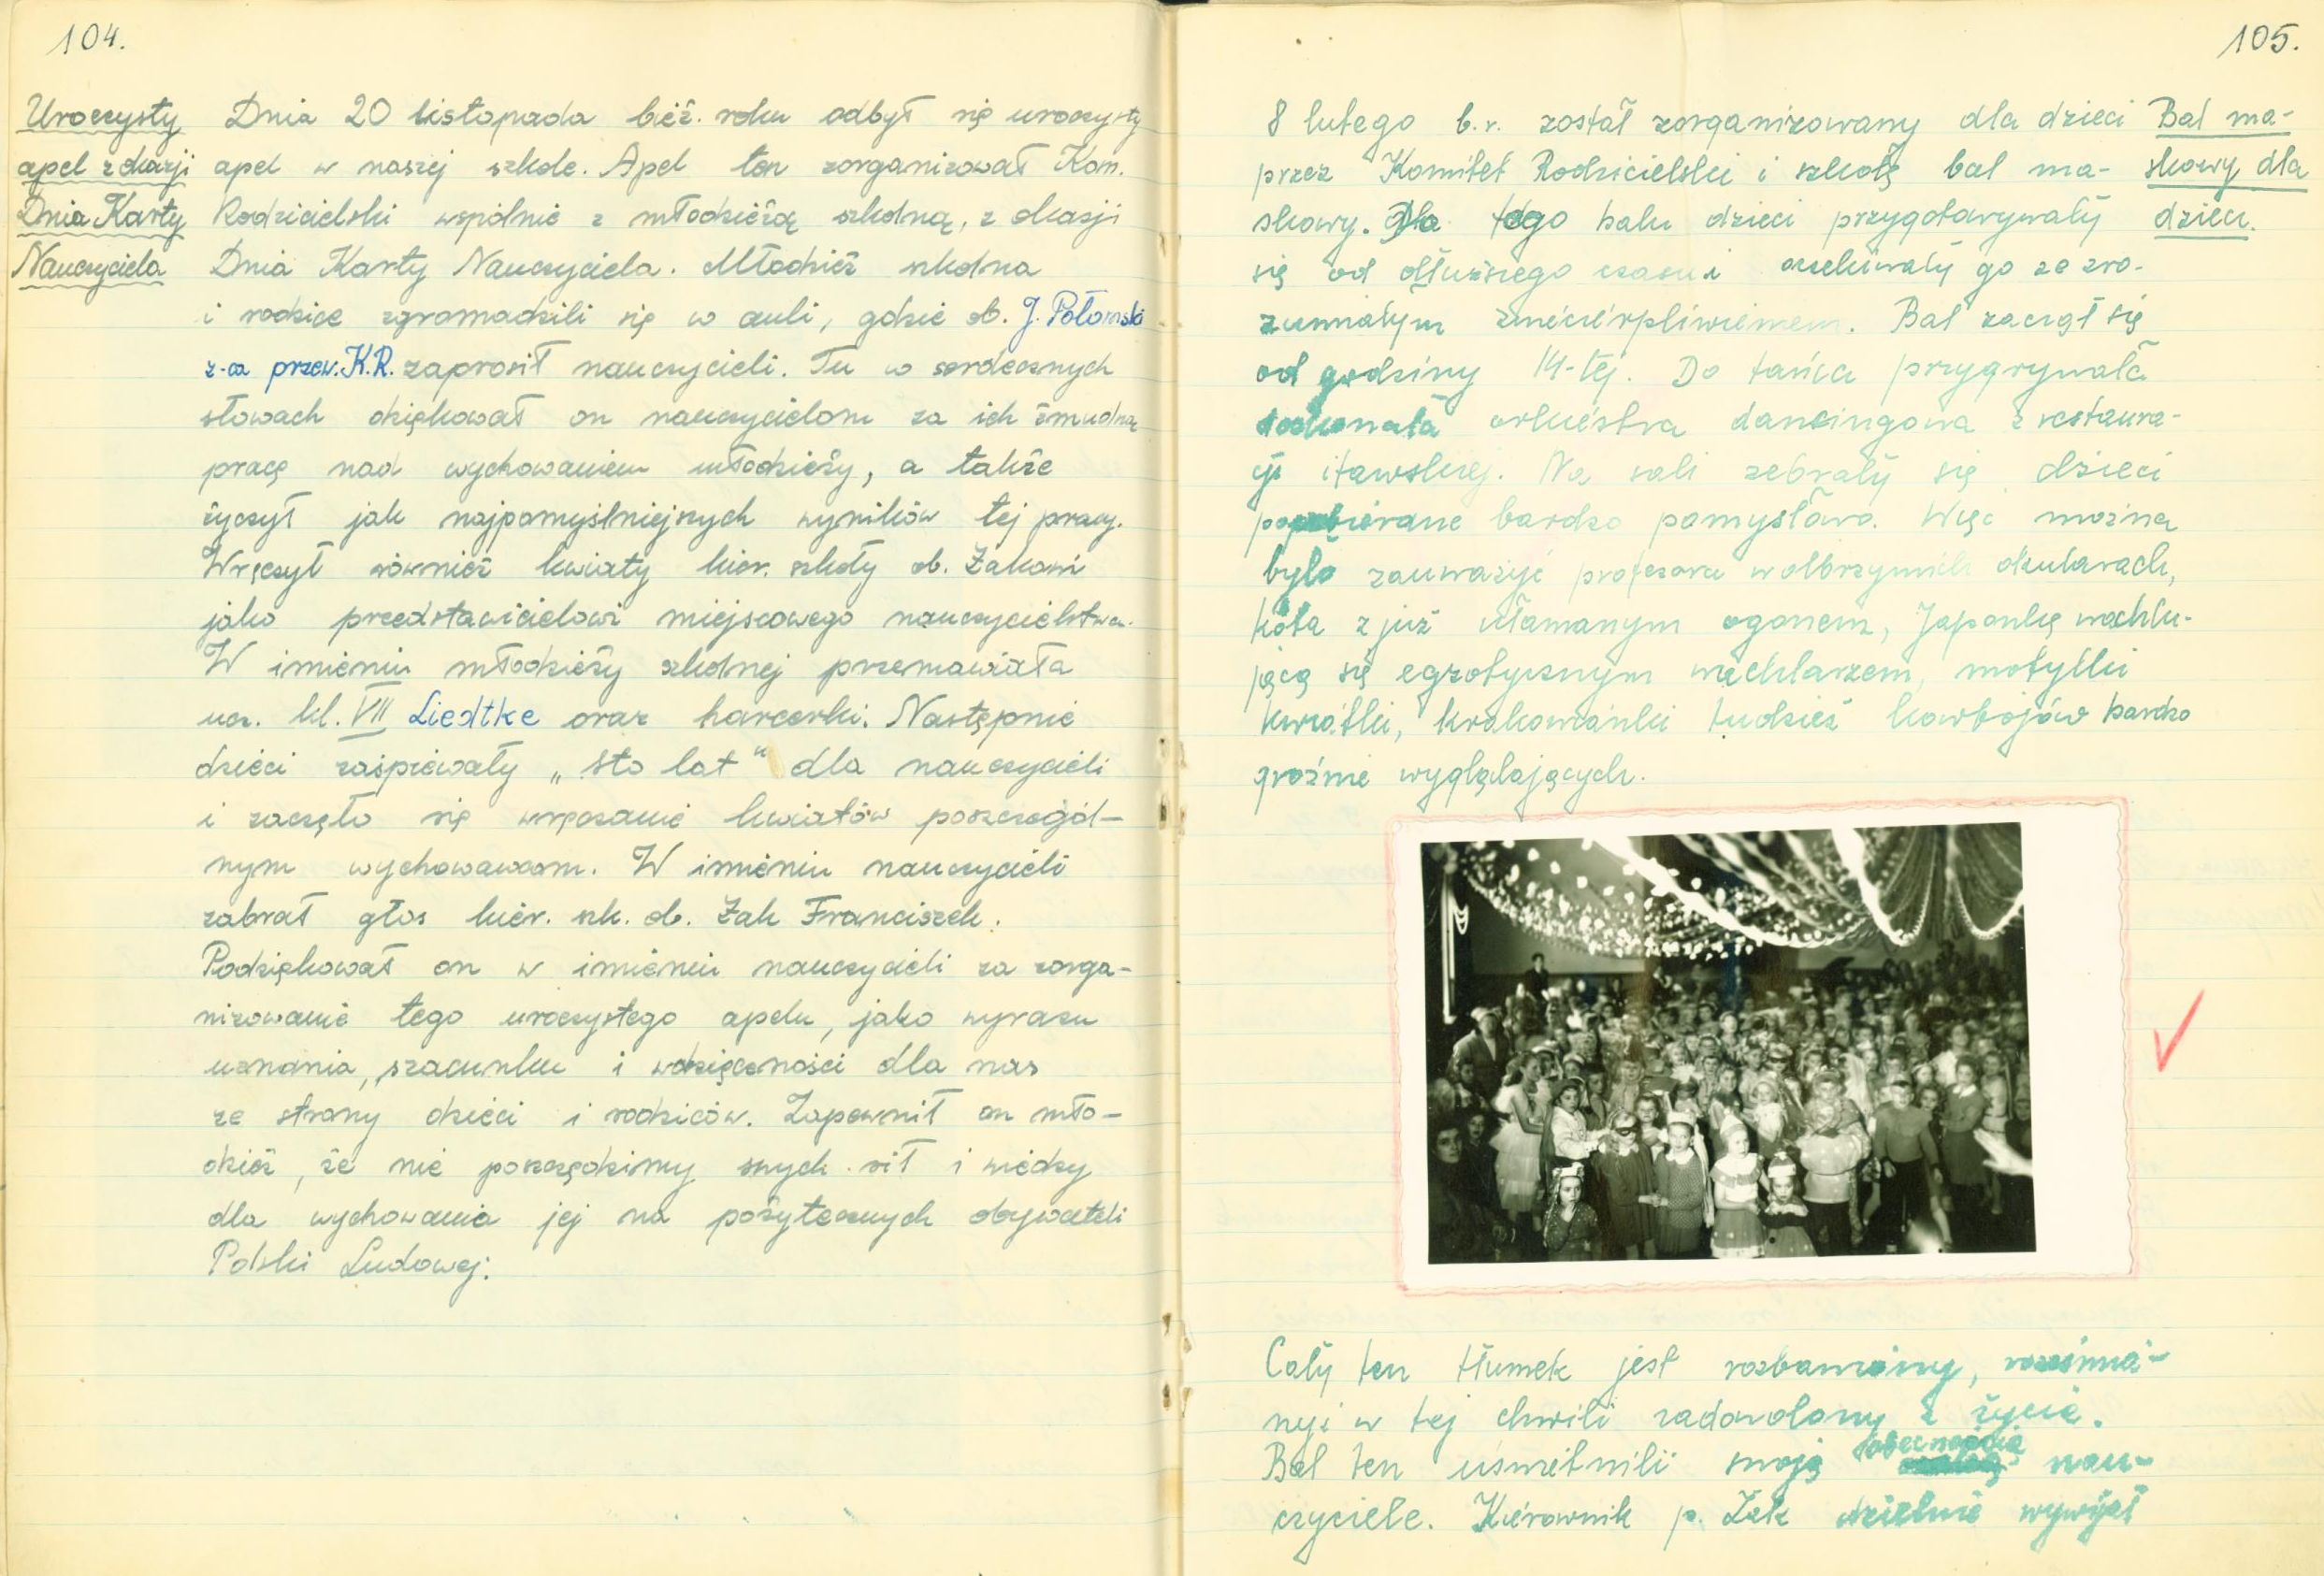 104.
Uroczysty
apel z okazji
Dnia Karty
Nauczyciela
Dnia 20 listopada bież. roku odbył się uroczysty
apel w naszej szkole. Apel ten zorganizował Kom.
Rodzicielski wspólnie z młodzieżą szkolną, z okazji
Dnia Karty Nauczyciela. Młodzież szkolna
i rodzice zgromadzili się w auli, gdzie ob. J. Połomski
z-ca przew. K.R. zaprosił nauczycieli. Tu w serdecznych
słowach dziękował on nauczycielom za ich żmudną
pracę nad wychowaniem młodzieży, a także
życzył jak najpomyślniejszych wyników tej pracy.
Wręczył również kwiaty kier. szkoły ob. Żakowi
jako przedstawicielowi miejscowego nauczycielstwa.
W imieniu młodzieży szkolnej przemawiała
ucz. kl. VII Liedtke oraz harcerki. Następnie
dzieci zaśpiewały „sto lat" dla nauczycieli
i zaczęło się wręczanie kwiatów poszczegól-
nym wychowawcom. W imieniu nauczycieli
zabrał głos kier. szk. ob. Żak Franciszek.
Podziękował on w imieniu nauczycieli za zorga-
nizowanie tego uroczystego apelu, jako wyrazu
uznania, szacunku i wdzięczności dla nas
ze strony dzieci i rodziców. Zapewnił on mło-
dzież, że nie poszczędzimy swych sił i wiedzy
dla wychowania jej na pożytecznych obywateli
Polski Ludowej.
105.
Bal ma-
skowy dla
dzieci.
8 lutego b.r. został zorganizowany dla dzieci
przez Komitet Rodzicielski i szkołę bal ma-
skowy. Do tego balu dzieci przygotowywały
się od dłuższego czasu i oczekiwały go ze zro-
zumiałym zniecierpliwieniem. Bal zaczął się
od godziny 14-tej. Do tańca przygrywała
doskonała orkiestra dancingowa z restaura-
cji iławskiej. Na sali zebrały się dzieci
poprzebierane bardzo pomysłowo. Więc można
było zauważyć profesora w olbrzymich okularach,
kota z już ułamanym ogonem, Japonkę wachlu-
jącą się egzotycznym wachlarzem, motylki
kwiatki, krakowianki tudzież kowbojów bardzo
groźnie wyglądających.
Cały ten tłumek jest rozbawiony, roześmia-
ny i w tej chwili zadowolony z życia.
Bal ten uświetnili swoją obecnością nau-
czyciele. Kierownik p. Żak dzielnie wywijał